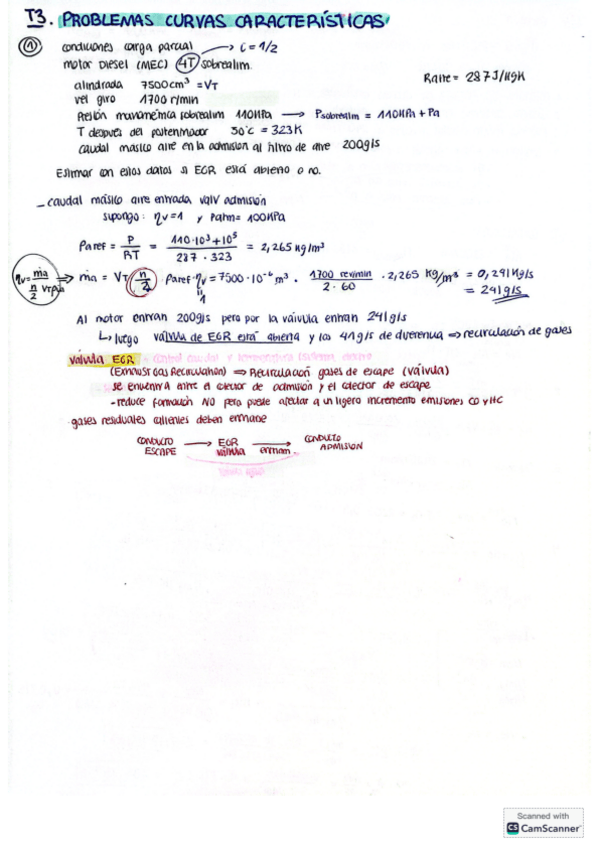 T3. PROBLEMAS CURVAS CARACTERÍSTICAS
① condiciones carga parcial → i = 1/2
motor Diesel (MEC) 4T sobrealim. Raire = 287 J/kgK
cilindrada 7500cm³ = VT
vel giro 1700 r/min
Presión manométrica sobrealim 110KPa → Psobrealim = 110KPa + Pa
T después del postenfriador 50°C = 323K
caudal másico aire en la admisión al filtro de aire 200g/s
Estimar con estos datos si EGR está abierto o no.
_ caudal másico aire entrada valv admisión
supongo: ηv=1 y Patm= 100KPa
ρaref = P/RT = (110·10³+10⁵)/(287 · 323) = 2,265 kg/m³
ηv = ṁa/(n/2 VTρa) ⇒ ṁa = VT · n/2 · ρaref · ηv = 7500·10⁻⁶ m³ · (1700 rev/min)/(2·60) · 2,265 kg/m³ = 0,241 kg/s
1 = 241 g/s
Al motor entran 200g/s pero por la válvula entran 241 g/s
↳ luego válvula de EGR está abierta y los 41 g/s de diferencia ⇒ recirculación de gases
válvula EGR - control caudal y temperatura
(Exhaust Gas Recirculation) ⇒ Recirculación gases de escape (válvula)
se encuentra entre el colector de admisión y el colector de escape
- reduce formación NO pero puede afectar a un ligero incremento emisiones CO y HC
gases residuales calientes deben enfriarse
CONDUCTO ESCAPE → EGR válvula → enfriam. CONDUCTO ADMISIÓN
Scanned with
CS CamScanner